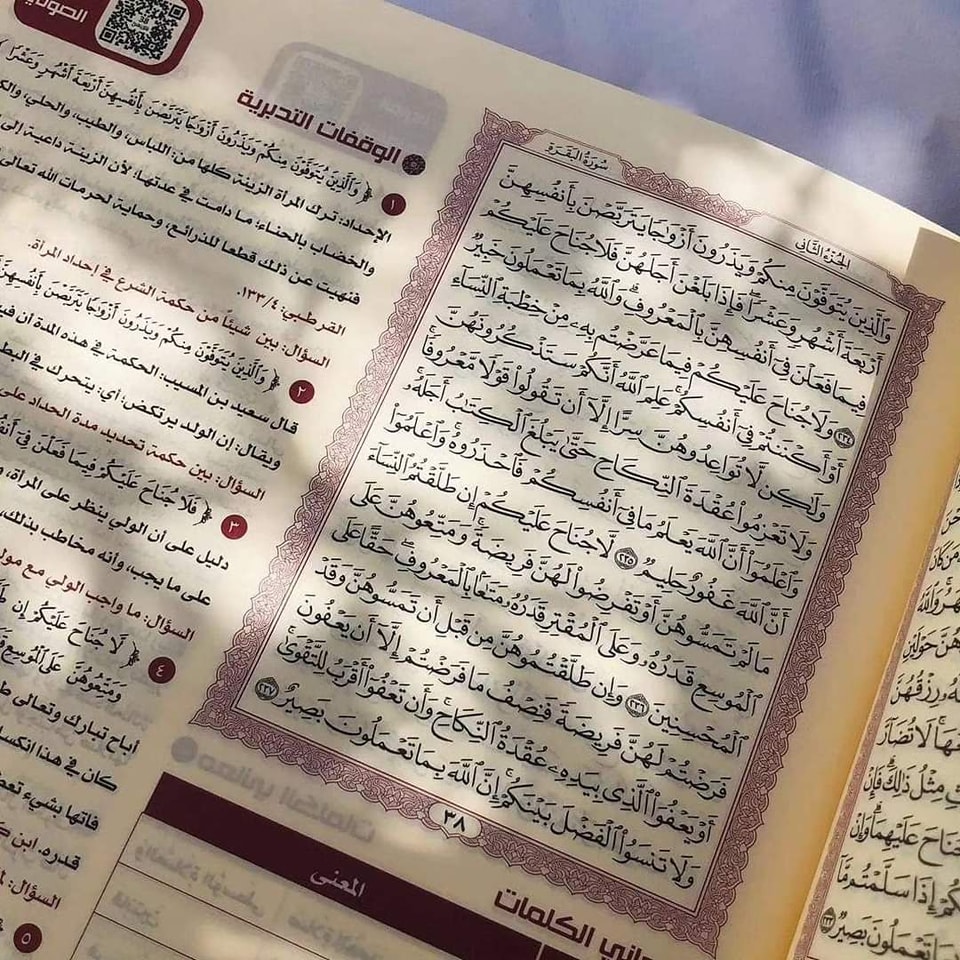 سُورَةُ البَقَرَةِ
الجُزْءُ الثَّانِي
وَالَّذِينَ يُتَوَفَّوْنَ مِنكُمْ وَيَذَرُونَ أَزْوَاجًا يَتَرَبَّصْنَ بِأَنفُسِهِنَّ
أَرْبَعَةَ أَشْهُرٍ وَعَشْرًا فَإِذَا بَلَغْنَ أَجَلَهُنَّ فَلَا جُنَاحَ عَلَيْكُمْ
فِيمَا فَعَلْنَ فِي أَنفُسِهِنَّ بِالْمَعْرُوفِ وَاللَّهُ بِمَا تَعْمَلُونَ خَبِيرٌ
٢٣٤ وَلَا جُنَاحَ عَلَيْكُمْ فِيمَا عَرَّضْتُم بِهِ مِنْ خِطْبَةِ النِّسَاءِ
أَوْ أَكْنَنتُمْ فِي أَنفُسِكُمْ عَلِمَ اللَّهُ أَنَّكُمْ سَتَذْكُرُونَهُنَّ
وَلَٰكِن لَّا تُوَاعِدُوهُنَّ سِرًّا إِلَّا أَن تَقُولُوا قَوْلًا مَّعْرُوفًا
وَلَا تَعْزِمُوا عُقْدَةَ النِّكَاحِ حَتَّىٰ يَبْلُغَ الْكِتَابُ أَجَلَهُ
وَاعْلَمُوا أَنَّ اللَّهَ يَعْلَمُ مَا فِي أَنفُسِكُمْ فَاحْذَرُوهُ وَاعْلَمُوا
أَنَّ اللَّهَ غَفُورٌ حَلِيمٌ ٢٣٥ لَّا جُنَاحَ عَلَيْكُمْ إِن طَلَّقْتُمُ النِّسَاءَ
مَا لَمْ تَمَسُّوهُنَّ أَوْ تَفْرِضُوا لَهُنَّ فَرِيضَةً وَمَتِّعُوهُنَّ عَلَى
الْمُوسِعِ قَدَرُهُ وَعَلَى الْمُقْتِرِ قَدَرُهُ مَتَاعًا بِالْمَعْرُوفِ حَقًّا عَلَى
الْمُحْسِنِينَ ٢٣٦ وَإِن طَلَّقْتُمُوهُنَّ مِن قَبْلِ أَن تَمَسُّوهُنَّ وَقَدْ
فَرَضْتُمْ لَهُنَّ فَرِيضَةً فَنِصْفُ مَا فَرَضْتُمْ إِلَّا أَن يَعْفُونَ
أَوْ يَعْفُوَا الَّذِي بِيَدِهِ عُقْدَةُ النِّكَاحِ وَأَن تَعْفُوا أَقْرَبُ لِلتَّقْوَىٰ
وَلَا تَنسَوُا الْفَضْلَ بَيْنَكُمْ إِنَّ اللَّهَ بِمَا تَعْمَلُونَ بَصِيرٌ ٢٣٧
٣٨
الوقفات التدبرية
١ ﴿ وَالَّذِينَ يُتَوَفَّوْنَ مِنكُمْ وَيَذَرُونَ أَزْوَاجًا يَتَرَبَّصْنَ بِأَنفُسِهِنَّ أَرْبَعَةَ أَشْهُرٍ وَعَشْرًا
الإحداد: ترك المرأة الزينة كلها من: اللباس، والطيب، والحلي،
والخضاب بالحناء؛ ما دامت في عدتها؛ لأن الزينة داعية إلى
فنهيت عن ذلك قطعا للذرائع، وحماية لحرمات الله تعالى
القرطبي: ٤/١٣٣.
السؤال: بين شيئا من حكمة الشرع في إحداد المرأة.
٢ ﴿ وَالَّذِينَ يُتَوَفَّوْنَ مِنكُمْ وَيَذَرُونَ أَزْوَاجًا يَتَرَبَّصْنَ بِأَنفُسِهِنَّ
قال سعيد بن المسيب: الحكمة في هذه المدة أن
ويقال: إن الولد يرتكض؛ أي: يتحرك في
السؤال: بين حكمة تحديد مدة الحداد على
٣ ﴿ فَلَا جُنَاحَ عَلَيْكُمْ فِيمَا فَعَلْنَ فِي
دليل على أن الولي ينظر على المرأة،
على ما يجب، وأنه مخاطب بذلك،
السؤال: ما واجب الولي مع
٤ ﴿ لَا جُنَاحَ عَلَيْكُمْ إِن
وَمَتِّعُوهُنَّ عَلَى الْمُوسِعِ
أباح تبارك وتعالى
كان في هذا
فاتها بشيء
قدره. ابن
السؤال:
٥
الكلمات
المعنى